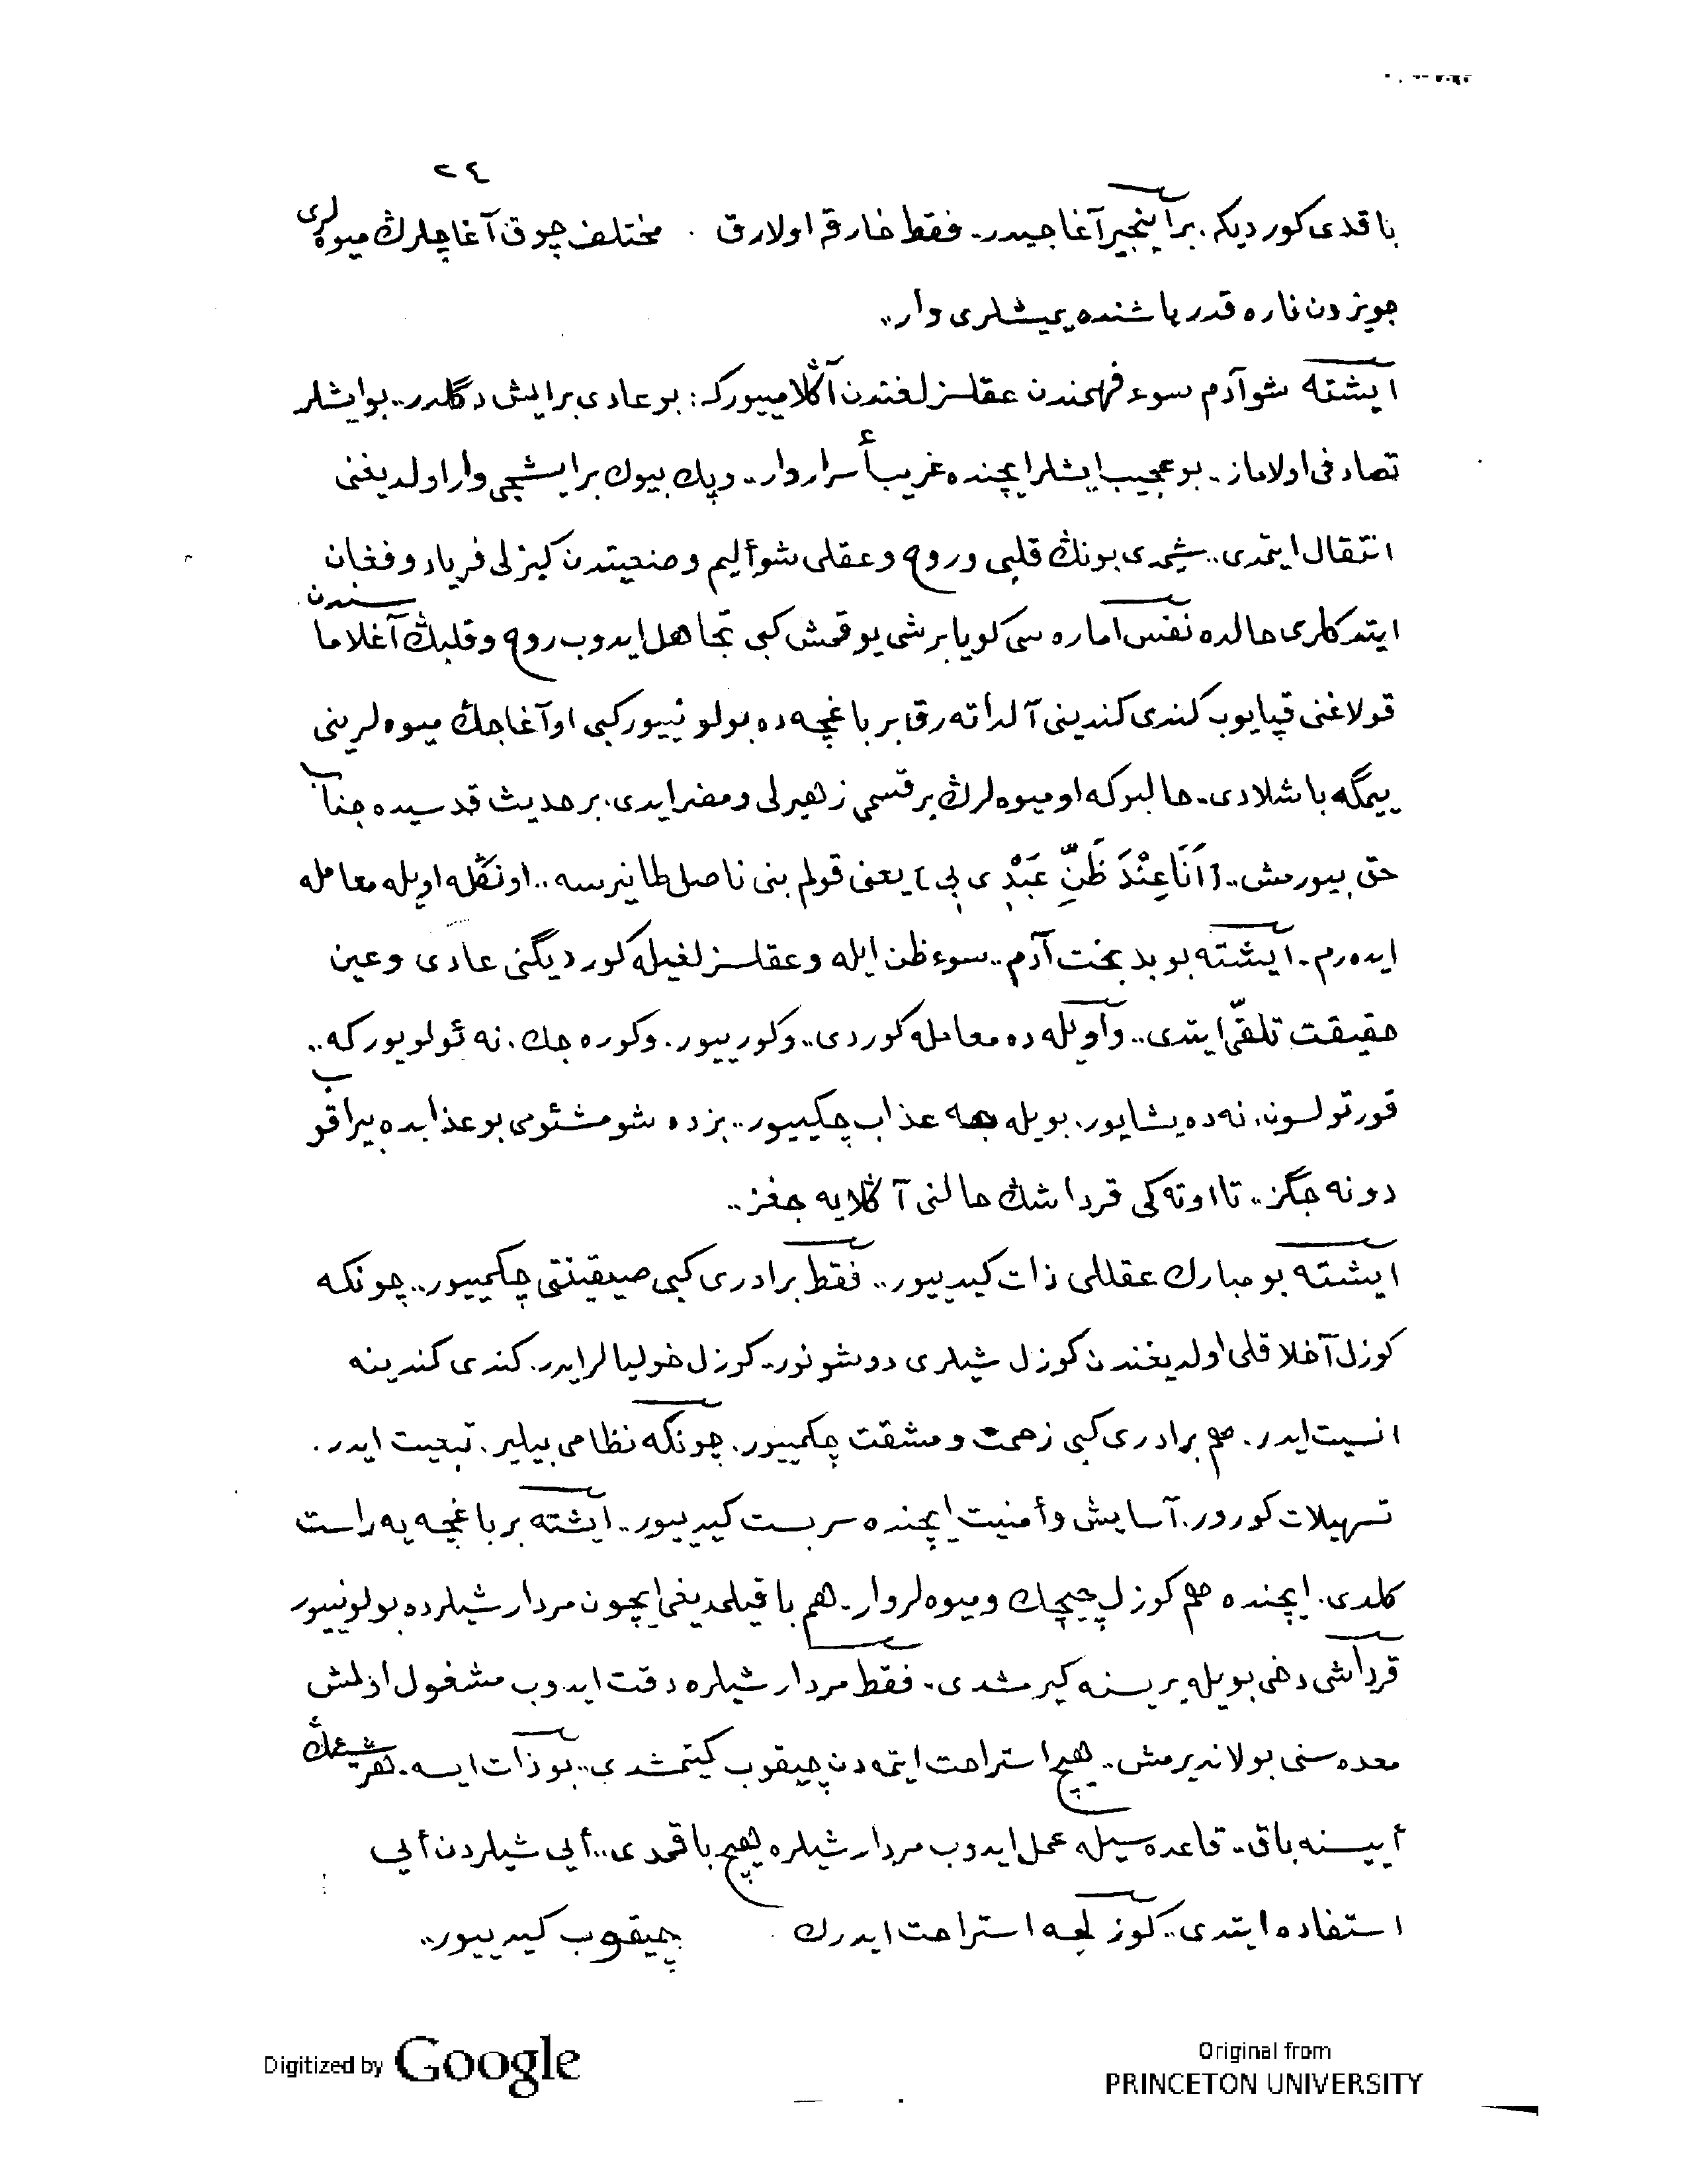 ٢٤
باقدی كورديكه. بر اينجير آغاجيدر.. فقط خارقه اولارق . مختلف چوق آغاچلرڭ ميوه‌لری
جويزدن ناره قدر باشنده يمشلری وار..
ايشته شو آدم سوء فهمندن عقلسزلغندن آڭلامييوركه: بو عادی بر ايش دگلدر.. بو ايشلر
تصادفی اولاماز.. بو عجيب ايشلر ايچنده غريب أسرار وار.. وپك بيوك بر ايشجی وار اولديغنی
انتقال ايتمدی.. شيمدی بونڭ قلبی وروح وعقلی شو أليم وضعيتدن كيزلی فرياد وفغان
ايتدكلری حالده نفس اماره سی كويا بر شی يوقمش كبی تجاهل ايدوب روح وقلبڭ آغلاماسندن
قولاغنی قپايوب كندی كندينی آلداته رق بر باغچه ده بولونييور كبی او آغاجڭ ميوه لرينی
ييمگه باشلادی.. حالبوكه او ميوه لرڭ بر قسمی زهيرلی ومضر ايدی. بر حديث قدسيده جناب
حق بيورمش.. [ اَنَا عِنْدَ ظَنِّ عَبْدِی بِی ] يعنی قولم بنی ناصل طانيرسه.. اونڭله اويله معامله
ايده رم.. ايشته بو بدبخت آدم.. سوء ظن ايله وعقلسزلغيله كورديگنی عادی وعين
حقيقت تلقّی ايتدی.. واويله ده معامله كوردی.. وكورييور. وكوره جك. نه ئولويوركه..
قورتولسون. نه ده يشايور. بويله جه عذاب چكييور.. بزده شو مشئومی بو عذابده بيراقوب
دونه جگز.. تا اوته كی قرداشڭ حالنی آڭلايه جغز..
ايشته بو مبارك عقللی ذات كيدييور.. فقط برادری كبی صيقينتی چكمييور.. چونكه
كوزل آخلاقلی اولديغندن كوزل شيلری دوشونور.. كوزل خوليالر ايدر. كندی كندينه
انسيت ايدر. هم برادری كبی زحمت ومشقت چكمييور. چونكه نظامی بيلير. تبعيت ايدر.
تسهيلات كورور. آسايش وأمنيت ايچنده سربست كيدييور.. ايشته بر باغچه يه راست
كلدی. ايچنده هم كوزل چيچك وميوه لر وار.. هم باقيلمديغی ايچون مردار شيلرده بولونييور
قرداشی دخی بويله بريسنه كيرمشدی.. فقط مردار شيلره دقت ايدوب مشغول اولمش
معده سنی بولانديرمش.. هيچ استراحت ايتمه دن چيقوب كيتمشدی.. بو ذات ايسه.. هر شيئڭ
أييسنه باق.. قاعده سيله عمل ايدوب مردار شيلره هيچ باقمدی.. أيی شيلردن أيی
استفاده ايتدی.. كوزلجه استراحت ايدرك چيقوب كيدييور..
Digitized by Google
Original from
PRINCETON UNIVERSITY